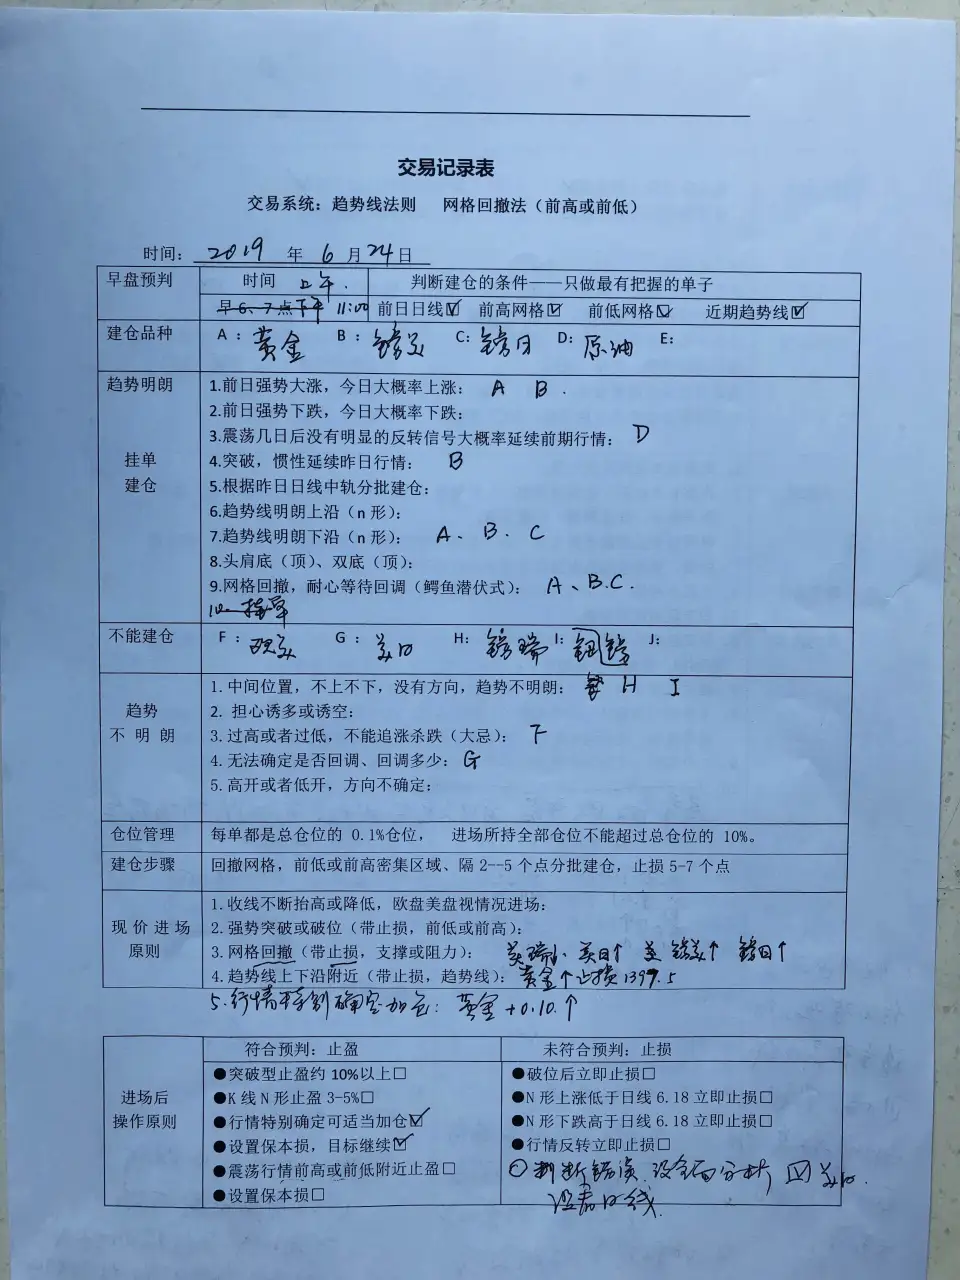 交易记录表
交易系统：趋势线法则 网格回撤法（前高或前低）
时间： 2019 年 6 月 24 日
早盘预判 时间 上午. 判断建仓的条件——只做最有把握的单子
早 6、7 点 下午 11:00 前日日线☑ 前高网格☑ 前低网格☑ 近期趋势线☑
建仓品种 A：黄金 B：镑美 C：镑日 D：原油 E：
趋势明朗 1.前日强势大涨，今日大概率上涨： A B .
2.前日强势下跌，今日大概率下跌：
3.震荡几日后没有明显的反转信号大概率延续前期行情： D
挂单 4.突破，惯性延续昨日行情： B
建仓 5.根据昨日日线中轨分批建仓：
6.趋势线明朗上沿（n 形）：
7.趋势线明朗下沿（n 形）： A、B、C
8.头肩底（顶）、双底（顶）：
9.网格回撤，耐心等待回调（鳄鱼潜伏式）： A、B.C.
10. 挂单
不能建仓 F：欧美 G：美日 H：镑瑞 I：钮镑 J：
1. 中间位置，不上不下，没有方向，趋势不明朗： H I
趋势 2. 担心诱多或诱空：
不 明 朗 3. 过高或者过低，不能追涨杀跌（大忌）： F
4. 无法确定是否回调、回调多少： G
5. 高开或者低开，方向不确定：
仓位管理 每单都是总仓位的 0.1%仓位， 进场所持全部仓位不能超过总仓位的 10%。
建仓步骤 回撤网格，前低或前高密集区域、隔 2--5 个点分批建仓，止损 5-7 个点
1. 收线不断抬高或降低，欧盘美盘视情况进场：
现 价 进 场 2. 强势突破或破位（带止损，前低或前高）：
原则 3. 网格回撤（带止损，支撑或阻力）： 美瑞 美日↑ 镑美↑ 镑日↑
4. 趋势线上下沿附近（带止损，趋势线）： 黄金↑止损1397.5
5.行情特别确定加仓：黄金+0.10.↑
符合预判：止盈 未符合预判：止损
●突破型止盈约 10%以上□ ●破位后立即止损□
进场后 ●K 线 N 形止盈 3-5%□ ●N 形上涨低于日线 6.18 立即止损□
操作原则 ●行情特别确定可适当加仓☑ ●N 形下跌高于日线 6.18 立即止损□
●设置保本损，目标继续☑ ●行情反转立即止损□
●震荡行情前高或前低附近止盈□ 判断错误.没全面分析
●设置保本损□ 日线